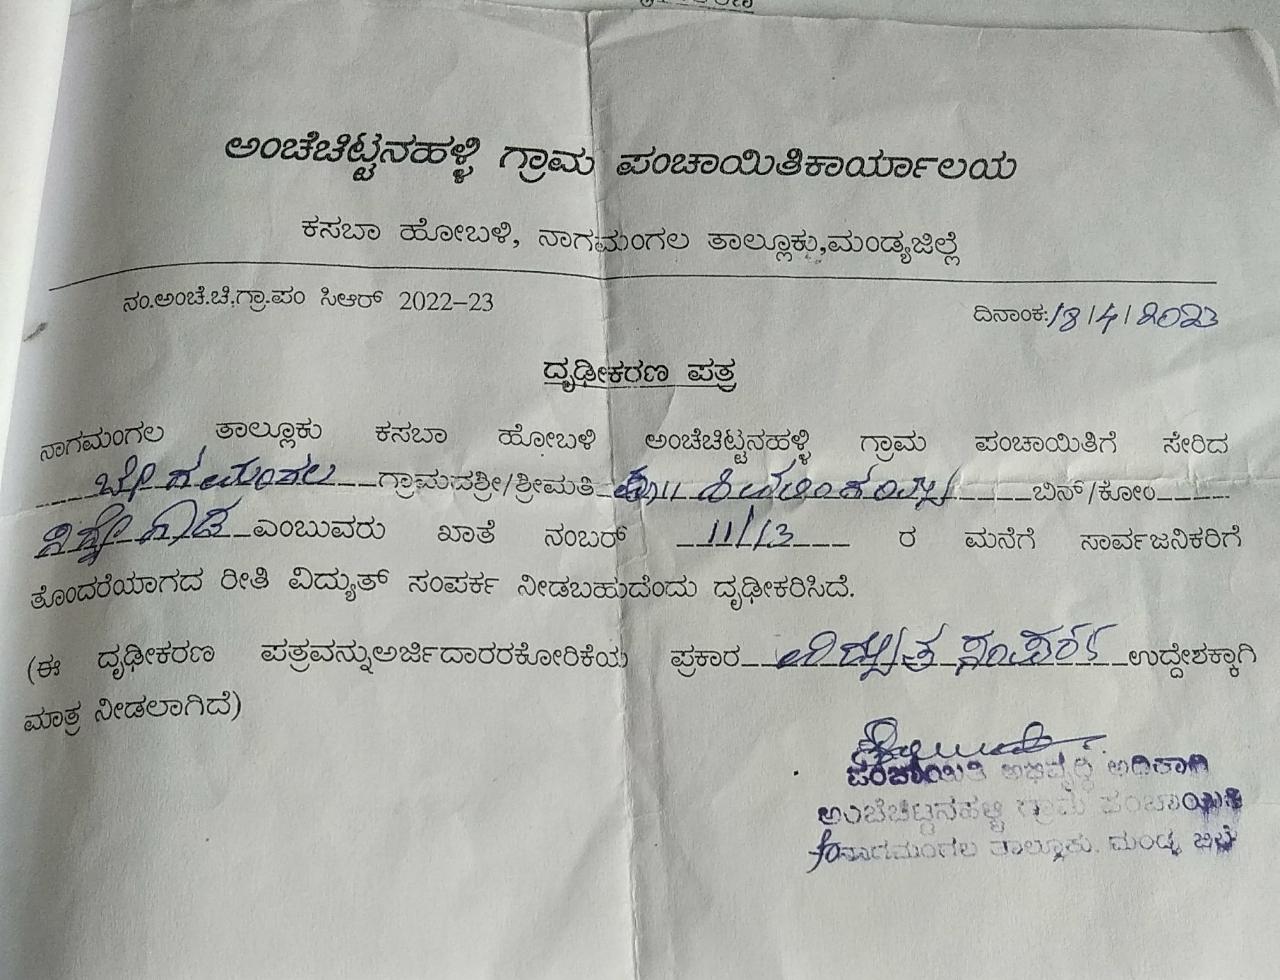 ಅಂಚೆಚಿಟ್ಟನಹಳ್ಳಿ ಗ್ರಾಮ ಪಂಚಾಯಿತಿಕಾರ್ಯಾಲಯ
ಕಸಬಾ ಹೋಬಳಿ, ನಾಗಮಂಗಲ ತಾಲ್ಲೂಕು,ಮಂಡ್ಯಜಿಲ್ಲೆ
ನಂ.ಅಂಚೆ.ಚಿ.ಗ್ರಾ.ಪಂ ಸಿಆರ್ 2022–23
ದಿನಾಂಕ:18/4/2023
ದೃಢೀಕರಣ ಪತ್ರ
ನಾಗಮಂಗಲ ತಾಲ್ಲೂಕು ಕಸಬಾ ಹೋಬಳಿ ಅಂಚೆಚಿಟ್ಟನಹಳ್ಳಿ ಗ್ರಾಮ ಪಂಚಾಯಿತಿಗೆ ಸೇರಿದ
ಗ್ರಾಮದಶ್ರೀ/ಶ್ರೀಮತಿ ಬಿನ್/ಕೋಂ
ಎಂಬುವರು ಖಾತೆ ನಂಬರ್ 11/13 ರ ಮನೆಗೆ ಸಾರ್ವಜನಿಕರಿಗೆ
ತೊಂದರೆಯಾಗದ ರೀತಿ ವಿದ್ಯುತ್ ಸಂಪರ್ಕ ನೀಡಬಹುದೆಂದು ದೃಢೀಕರಿಸಿದೆ.
(ಈ ದೃಢೀಕರಣ ಪತ್ರವನ್ನುಅರ್ಜಿದಾರರಕೋರಿಕೆಯ ಪ್ರಕಾರ ವಿದ್ಯುತ್ ಸಂಪರ್ಕ ಉದ್ದೇಶಕ್ಕಾಗಿ
ಮಾತ್ರ ನೀಡಲಾಗಿದೆ)
ಪಂಚಾಯಿತಿ ಅಭಿವೃದ್ಧಿ ಅಧಿಕಾರಿ
ಅಂಚೆಚಿಟ್ಟನಹಳ್ಳಿ ಗ್ರಾಮ ಪಂಚಾಯಿತಿ
ನಾಗಮಂಗಲ ತಾಲ್ಲೂಕು. ಮಂಡ್ಯ ಜಿಲ್ಲೆ